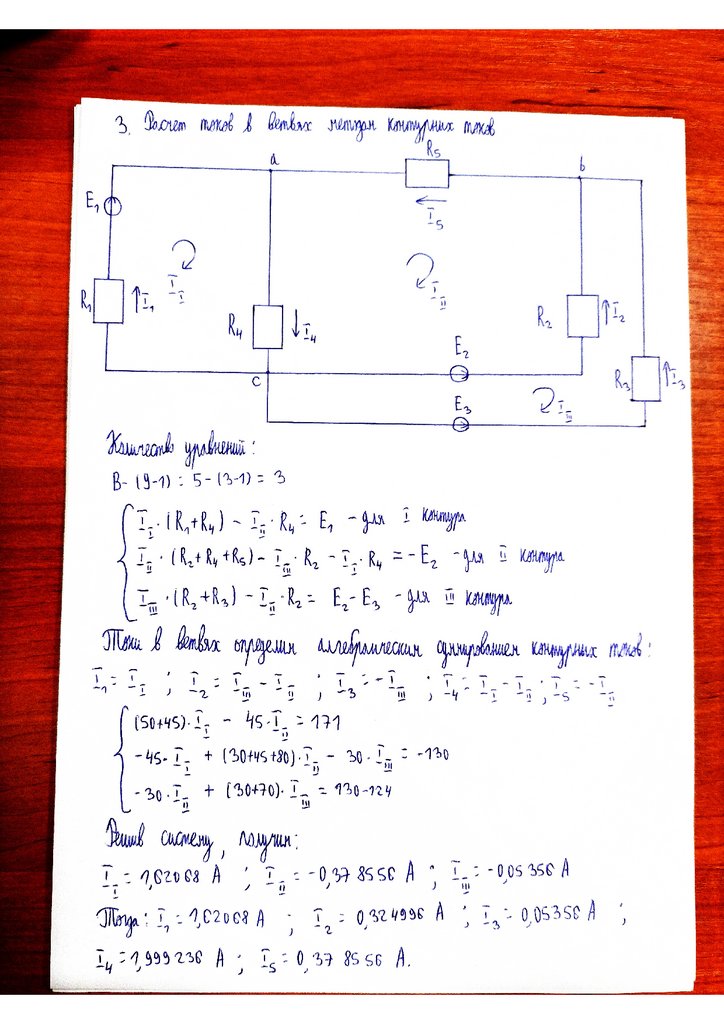 3. Расчет токов в ветвях методом контурных токов
R5
a
b
E1
I5
R1
I1
I_I
I_II
R4
I4
R2
I2
E2
R3
I3
c
E3
I_III
Количество уравнений:
B-(У-1) = 5-(3-1) = 3
I_I · (R1+R4) - I_II · R4 = E1 - для I контура
I_II · (R2+R4+R5) - I_III · R2 - I_I · R4 = -E2 - для II контура
I_III · (R2+R3) - I_II · R2 = E2-E3 - для III контура
Токи в ветвях определим алгебраическим суммированием контурных токов:
I1 = I_I ; I2 = I_III - I_II ; I3 = -I_III ; I4 = I_I - I_II ; I5 = -I_II
(50+45)·I_I - 45·I_II = 171
-45·I_I + (30+45+80)·I_II - 30·I_III = -130
-30·I_II + (30+70)·I_III = 130-124
Решив систему, получим:
I_I = 1,62068 А ; I_II = -0,37856 А ; I_III = -0,05356 А
Тогда: I1 = 1,62068 А ; I2 = 0,324996 А ; I3 = 0,05356 А ;
I4 = 1,999236 А ; I5 = 0,378556 А.